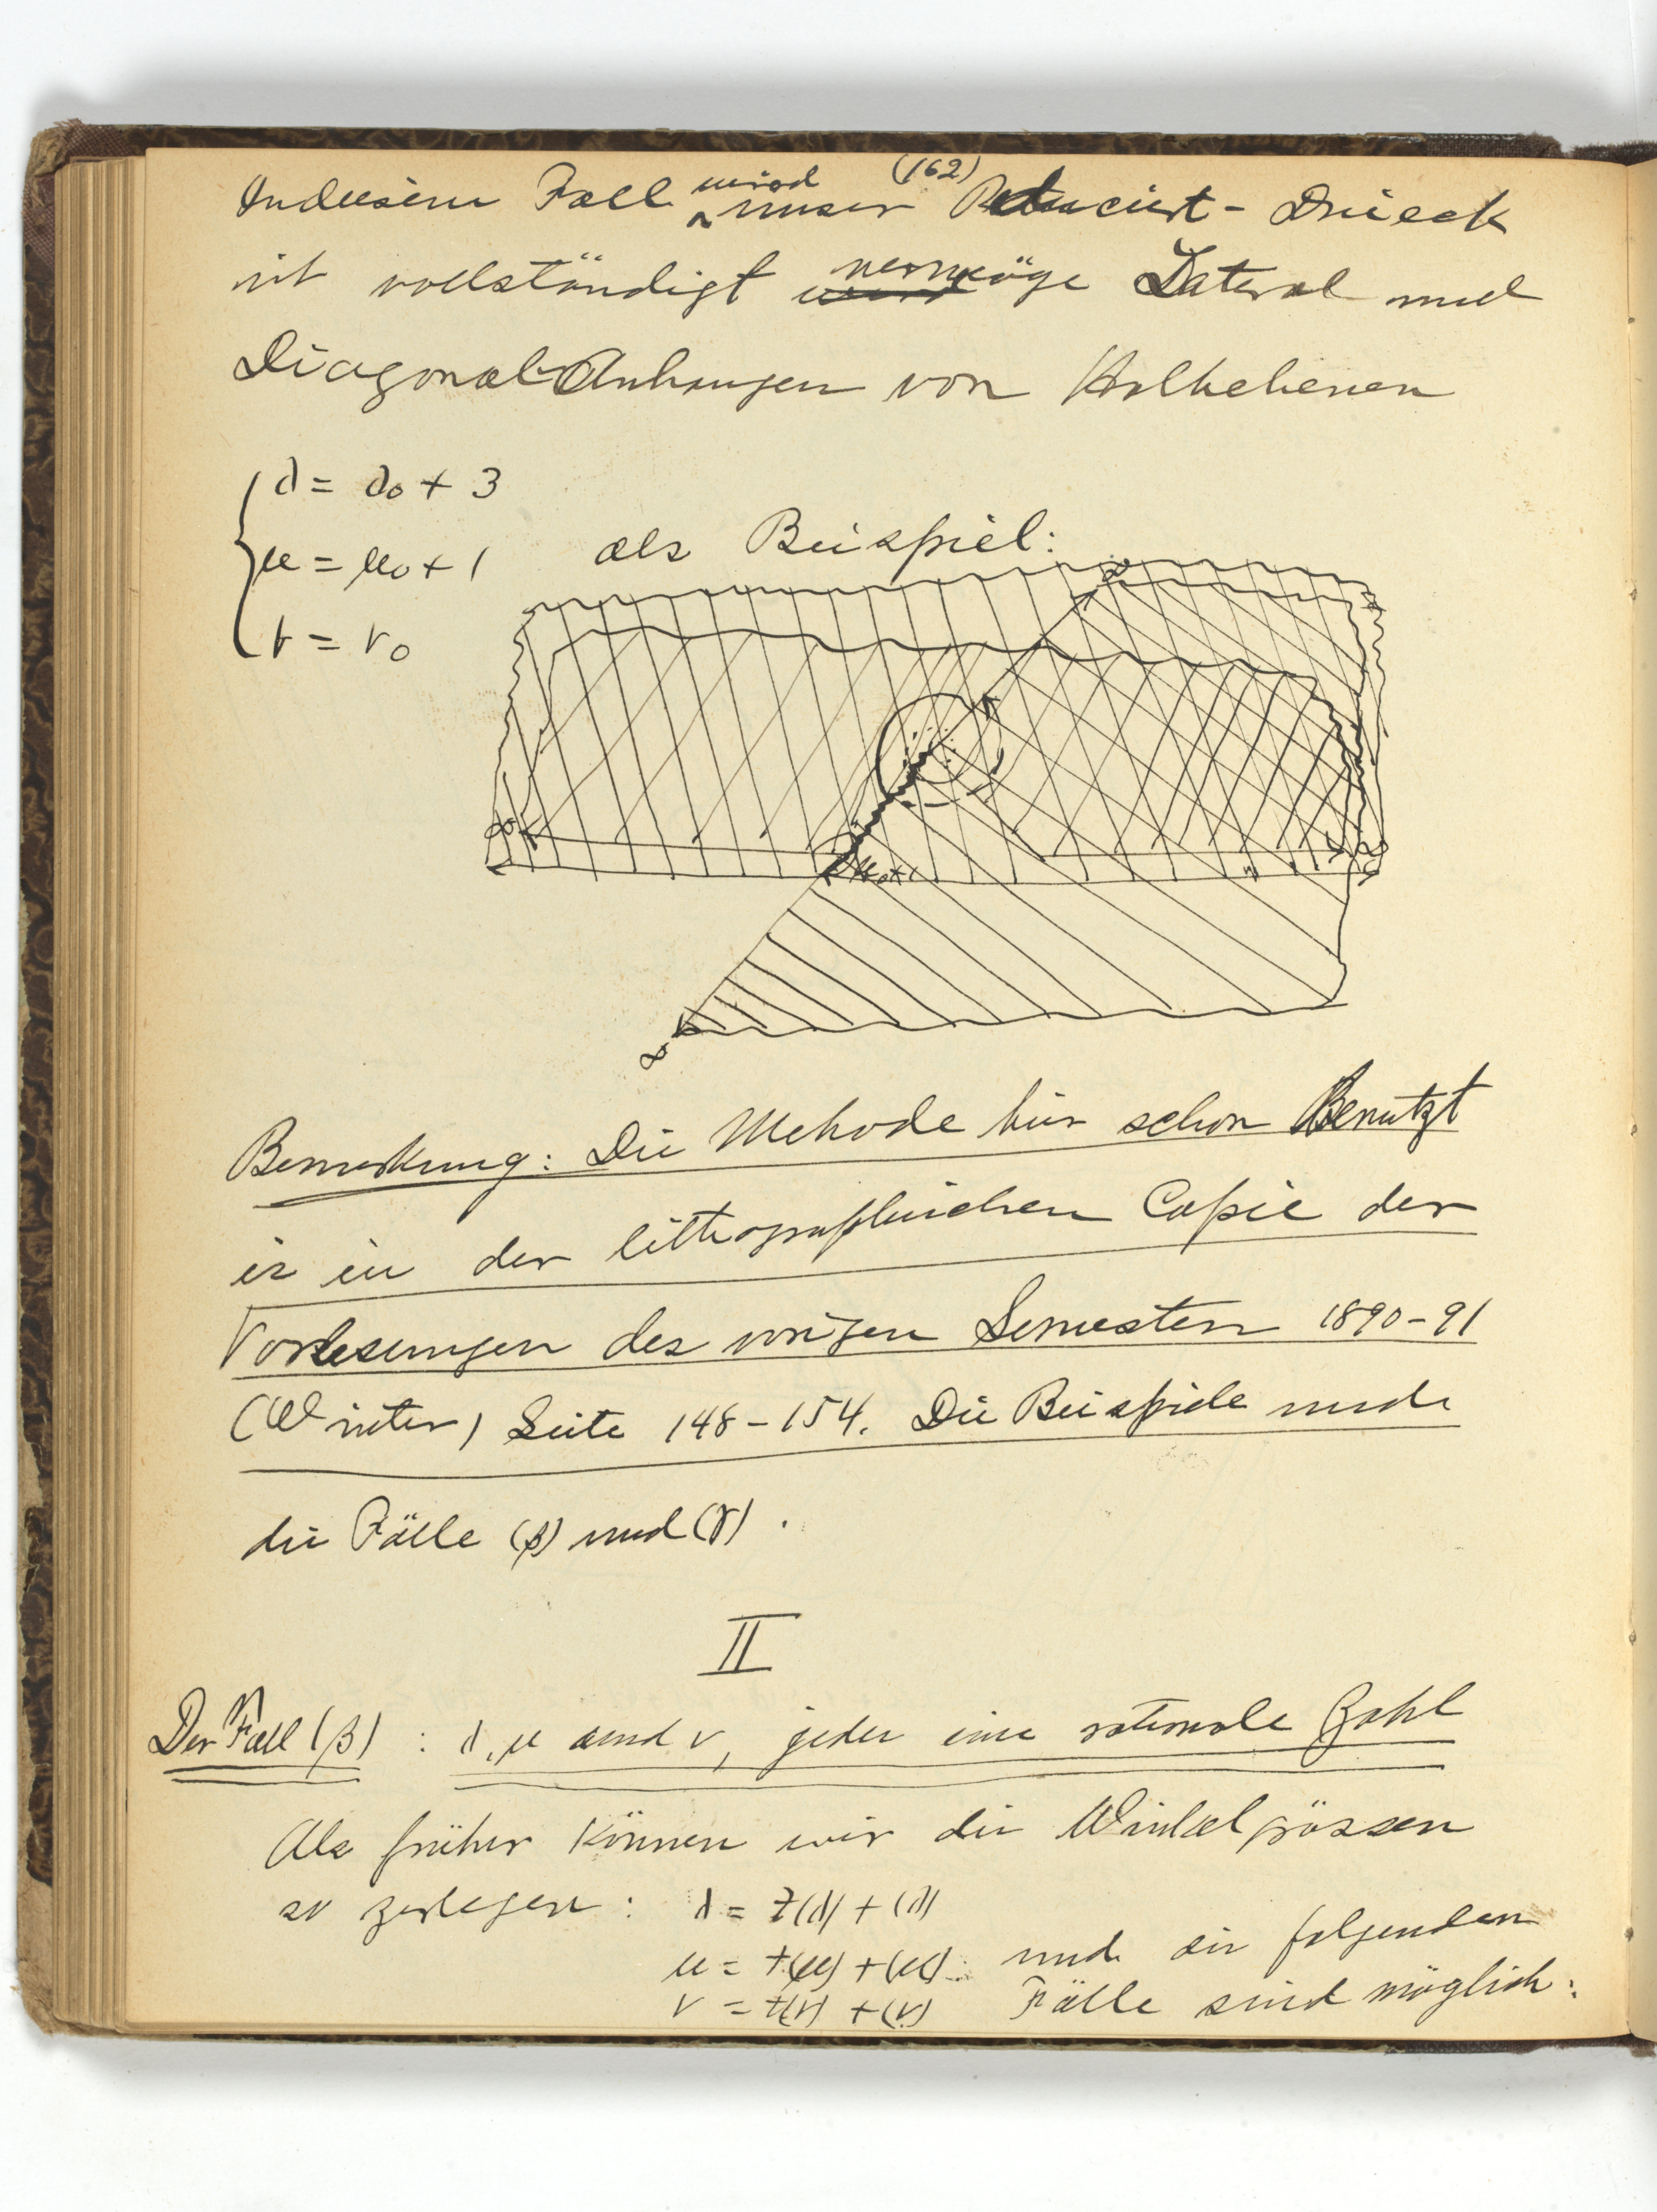 (162)
In diesem Fall wird unser Reduciert-Dreieck
ist vollständigt vermöge Lateral und
Diagonal Anhangen von Halbebenen
λ = λ₀ + 3
μ = μ₀ + 1 als Beispiel:
ν = ν₀
∞
∞
∞
Bemerkung: Die Methode hier schon Benutzt
is in der lithographischen Copie der
Vorlesungen des vorigen Semestern 1890-91
(Winter) Seite 148-154. Die Beispiele
die Fälle (β) und (γ).
II
Der Fall (β): λ, μ und ν, jeder eine rationale Zahl
Als früher können wir die Winkelgrössen
so zerlegen: λ = ±(λ) + (λ)
μ = ±(μ) + (μ) und die folgenden
ν = ±(ν) + (ν) Fälle sind möglich: